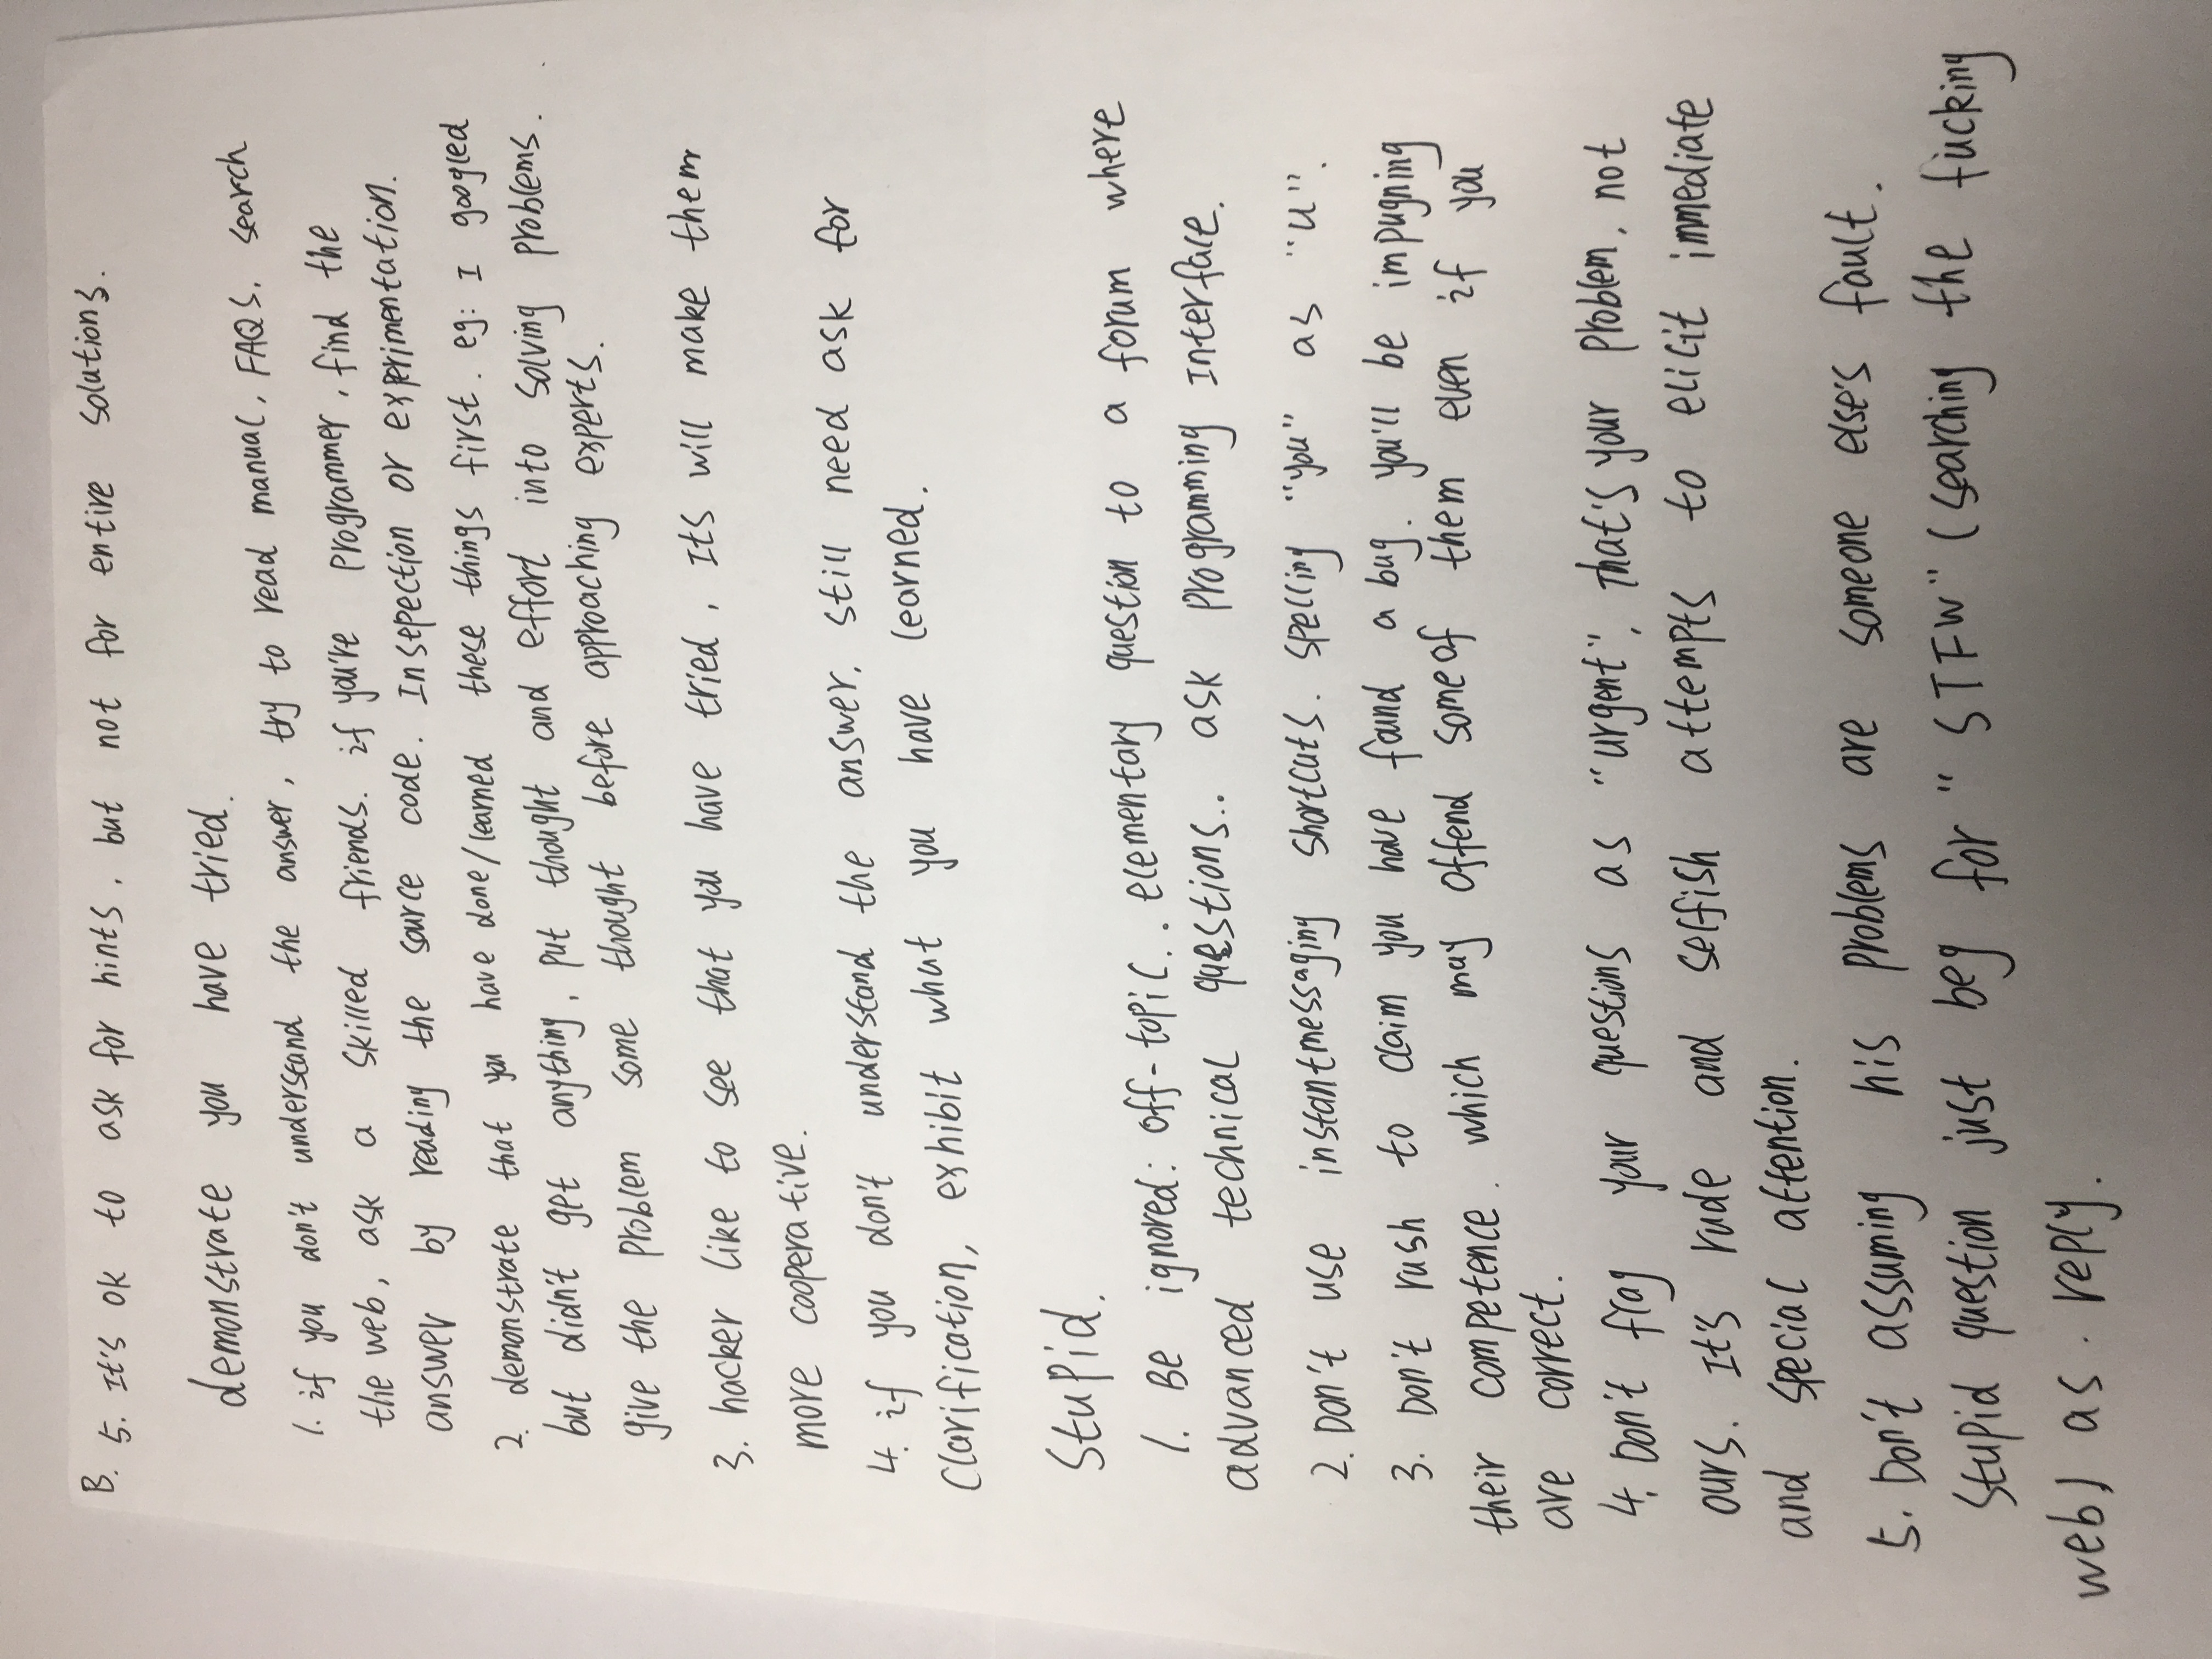 B. 5. It's ok to ask for hints, but not for entire solutions.
demonstrate you have tried.
1. if you don't understand the answer, try to read manual, FAQS, search
the web, ask a skilled friends. if you're programmer, find the
answer by reading the source code. Insepection or experimentation.
2. demonstrate that you have done/learned these things first. eg: I googled
but didn't get anything, put thought and effort into solving problems.
give the problem some thought before approaching experts.
3. hacker like to see that you have tried, Its will make them
more cooperative.
4. if you don't understand the answer, still need ask for
Clarification, exhibit what you have learned.
Stupid.
1. Be ignored: off-topic.. elementary question to a forum where
advanced technical questions.. ask programming Interface.
2. Don't use instantmessaging shortcuts. spelling "you" as "u".
3. Don't rush to claim you have found a bug. you'll be impugning
their competence. which may offend some of them even if you
are correct.
4. Don't flag your questions as "urgent", That's your problem, not
ours. It's rude and selfish attempts to elicit immediate
and special attention.
5. Don't assuming his problems are someone else's fault.
Stupid question just beg for "STFW" (searching the fucking
web) as. reply.